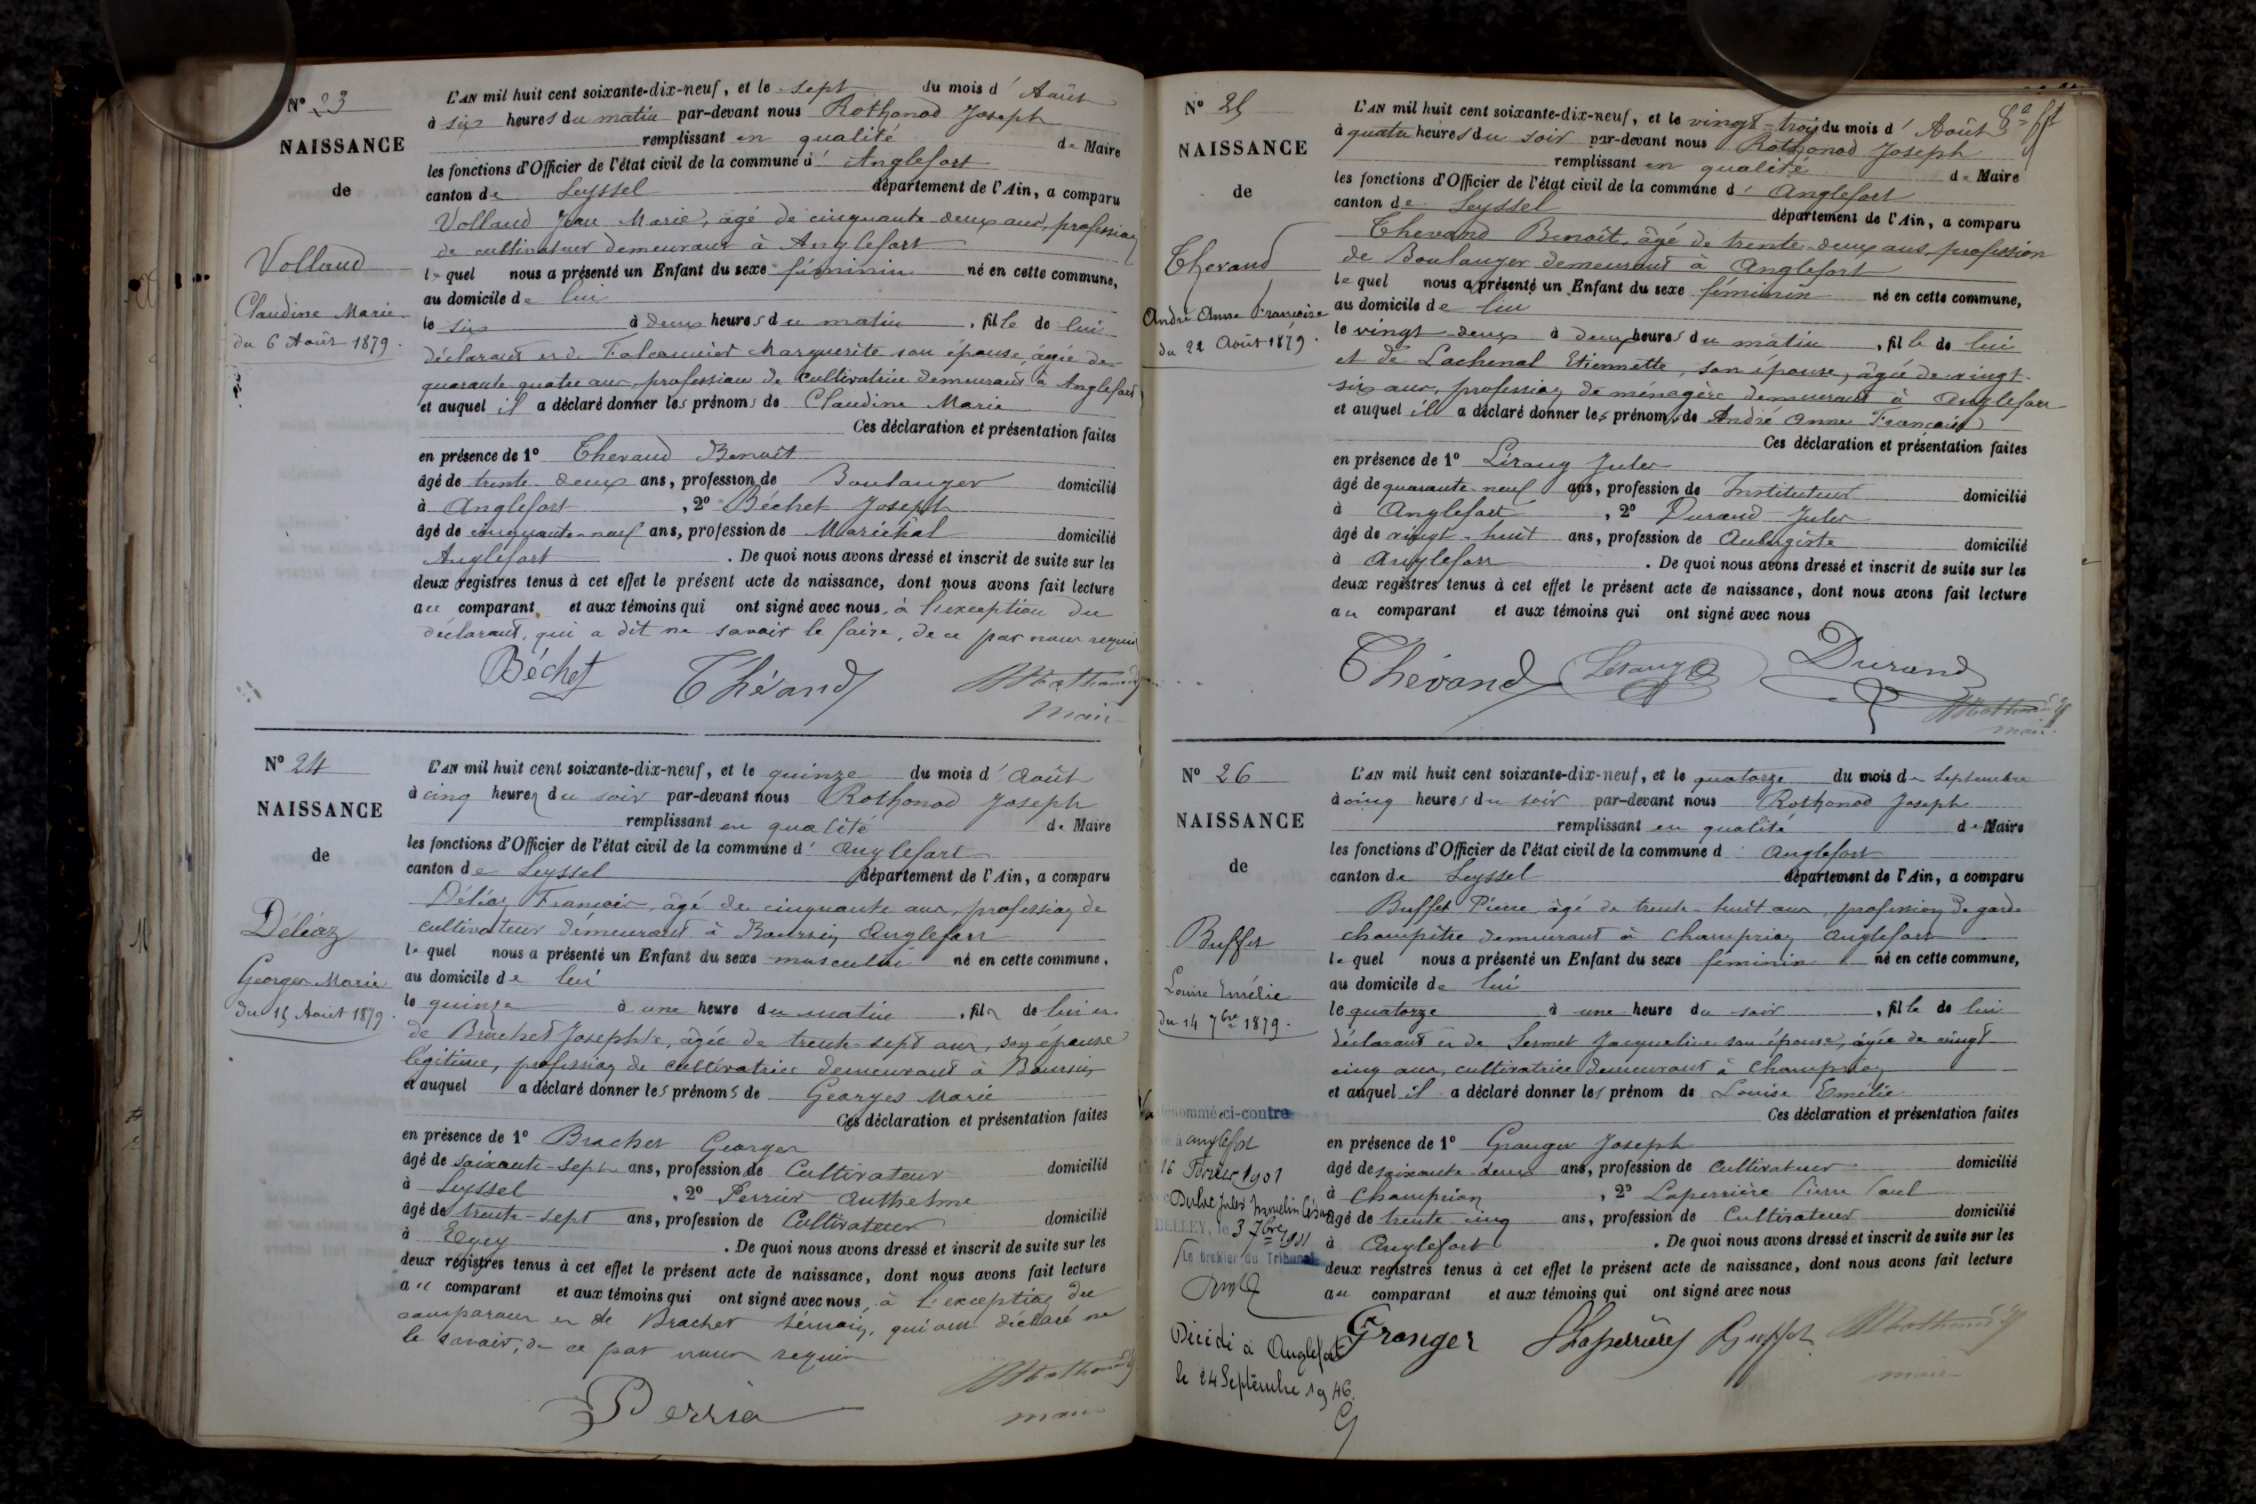 N° 23
NAISSANCE
de
Volland
Claudine Marie
du 6 Août 1879.
L'AN mil huit cent soixante-dix-neuf, et le sept du mois d' Août
à six heures du matin par-devant nous Rothonod Joseph
remplissant en qualité de Maire
les fonctions d'Officier de l'état civil de la commune d' Anglefort
canton de Seyssel département de l'Ain, a comparu
Volland Jean Marie, âgé de cinquante deux ans, profession
de cultivateur demeurant à Anglefort
lequel nous a présenté un Enfant du sexe féminin né en cette commune,
au domicile de lui
le six à deux heures du matin, fille de lui
déclarant et de Falconnier Marguerite son épouse, âgée de
quarante quatre ans, profession de cultivatrice demeurant à Anglefort
et auquel il a déclaré donner les prénoms de Claudine Marie
Ces déclaration et présentation faites
en présence de 1° Thevand Benoît
âgé de trente-deux ans, profession de Boulanger domicilié
à Anglefort, 2° Béchet Joseph
âgé de cinquante-neuf ans, profession de Maréchal domicilié
Anglefort. De quoi nous avons dressé et inscrit de suite sur les
deux registres tenus à cet effet le présent acte de naissance, dont nous avons fait lecture
au comparant et aux témoins qui ont signé avec nous, à l'exception du
déclarant, qui a dit ne savoir le faire, de ce par nous requis
Béchet Thévand
maire
N° 24
NAISSANCE
de
Déléaz
Georges Marie
du 15 Août 1879.
L'AN mil huit cent soixante-dix-neuf, et le quinze du mois d' Août
à cinq heures du soir par-devant nous Rothonod Joseph
remplissant en qualité de Maire
les fonctions d'Officier de l'état civil de la commune d' Anglefort
canton de Seyssel département de l'Ain, a comparu
Déléaz François, âgé de cinquante ans, profession de
cultivateur demeurant à Boursin Anglefort
lequel nous a présenté un Enfant du sexe masculin né en cette commune,
au domicile de lui
le quinze à une heure du matin, fils de lui et
de Brachet Josephte, âgée de trente-sept ans, son épouse
légitime, profession de cultivatrice demeurant à Boursin
et auquel a déclaré donner les prénoms de Georges Marie
Ces déclaration et présentation faites
en présence de 1° Brachet Georges
âgé de soixante-sept ans, profession de Cultivateur domicilié
à Seyssel, 2° Perrier Anthelme
âgé de trente-sept ans, profession de Cultivateur domicilié
à . De quoi nous avons dressé et inscrit de suite sur les
deux registres tenus à cet effet le présent acte de naissance, dont nous avons fait lecture
au comparant et aux témoins qui ont signé avec nous, à l'exception du
comparant et de Brachet témoin, qui ont déclaré ne
le savoir, de ce par nous requis
maire
N° 25
NAISSANCE
de
Thevand
André Anne Françoise
du 22 Août 1879.
L'AN mil huit cent soixante-dix-neuf, et le vingt-trois du mois d' Août
à quatre heures du soir par-devant nous Rothonod Joseph
remplissant en qualité de Maire
les fonctions d'Officier de l'état civil de la commune d' Anglefort
canton de Seyssel département de l'Ain, a comparu
Thevand Benoît, âgé de trente-deux ans, profession
de Boulanger demeurant à Anglefort
lequel nous a présenté un Enfant du sexe féminin né en cette commune,
au domicile de lui
le vingt-deux à deux heures du matin, fille de lui
et de Lachenal Etiennette, son épouse, âgée de vingt-
six ans, profession de ménagère demeurant à Anglefort
et auquel il a déclaré donner les prénoms de André Anne Françoise
Ces déclaration et présentation faites
en présence de 1° Jules
âgé de quarante-neuf ans, profession de Instituteur domicilié
à Anglefort, 2° Durand Jules
âgé de vingt-huit ans, profession de Aubergiste domicilié
à Anglefort. De quoi nous avons dressé et inscrit de suite sur les
deux registres tenus à cet effet le présent acte de naissance, dont nous avons fait lecture
au comparant et aux témoins qui ont signé avec nous
Thévand Durand
maire
N° 26
NAISSANCE
de
Buffet
Louise Emélie
du 14 7bre 1879.
L'AN mil huit cent soixante-dix-neuf, et le quatorze du mois de Septembre
à cinq heures du soir par-devant nous Rothonod Joseph
remplissant en qualité de Maire
les fonctions d'Officier de l'état civil de la commune d Anglefort
canton de Seyssel département de l'Ain, a comparu
Buffet Pierre, âgé de trente-huit ans, profession de garde
champêtre demeurant à Champrion Anglefort
lequel nous a présenté un Enfant du sexe féminin né en cette commune,
au domicile de lui
le quatorze à une heure du soir, fille de lui
déclarant et de Sermet Jacqueline son épouse, âgée de vingt-
cinq ans, cultivatrice demeurant à Champrion
et auquel il a déclaré donner les prénom de Louise Emélie
Ces déclaration et présentation faites
en présence de 1° Granger Joseph
âgé de soixante-deux ans, profession de Cultivateur domicilié
à Champrion, 2° Laperrière Pierre Paul
âgé de trente cinq ans, profession de Cultivateur domicilié
à Anglefort. De quoi nous avons dressé et inscrit de suite sur les
deux registres tenus à cet effet le présent acte de naissance, dont nous avons fait lecture
au comparant et aux témoins qui ont signé avec nous
Granger Laperrière Buffet
maire
dénommé ci-contre
à Anglefort
16 Février 1901
Jules
BELLEY, le 3 7bre 1901
Le Greffier du Tribunal
Décédé à Anglefort
le 24 Septembre 1946.